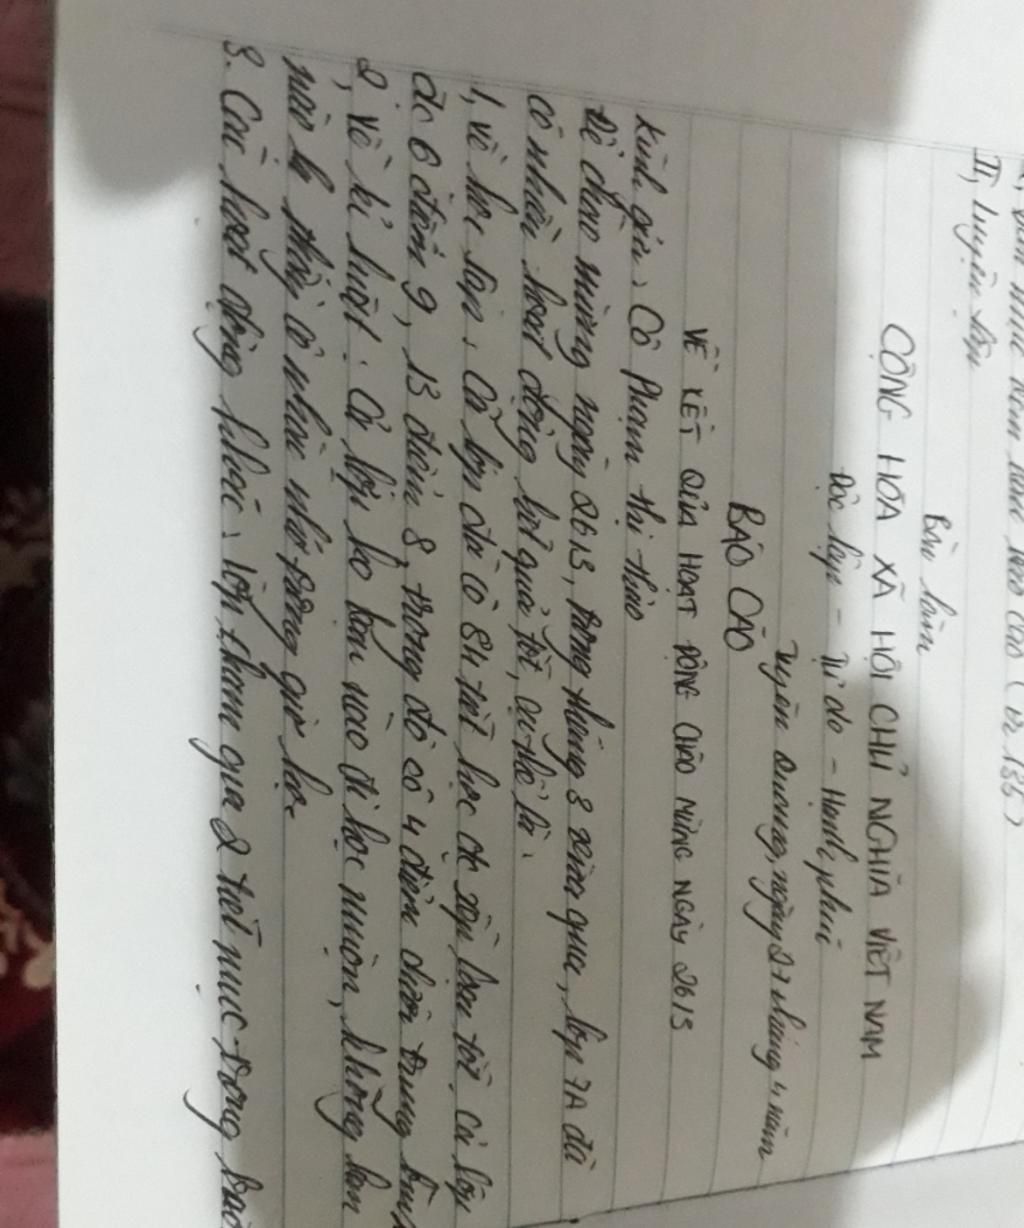 II, Luyện tập
Bài làm
CỘNG HÒA XÃ HỘI CHỦ NGHĨA VIỆT NAM
Độc lập - Tự do - Hạnh phúc
Tuyên Quang, ngày 27 tháng 4 năm
BÁO CÁO
VỀ KẾT QUẢ HOẠT ĐỘNG CHÀO MỪNG NGÀY 26/3
Kính gửi: Cô Phạm thị thảo
Để chào mừng ngày 26/3, trong tháng 3 vừa qua, lớp 7A đã
có nhiều hoạt động kết quả tốt, cụ thể là:
1, Về học tập: Cả lớp đã có 84 tiết học đc xếp loại tốt. Cả lớp
đc 6 điểm 9, 13 điểm 8, trong đó có 4 điểm
2, Về kỉ luật: Cả lớp ko bạn nào đi học muộn, không bạn
nào bị thầy cô nhắc nhở trong giờ học
3. Các hoạt động khác: lớp tham gia 2 tiết mục trong